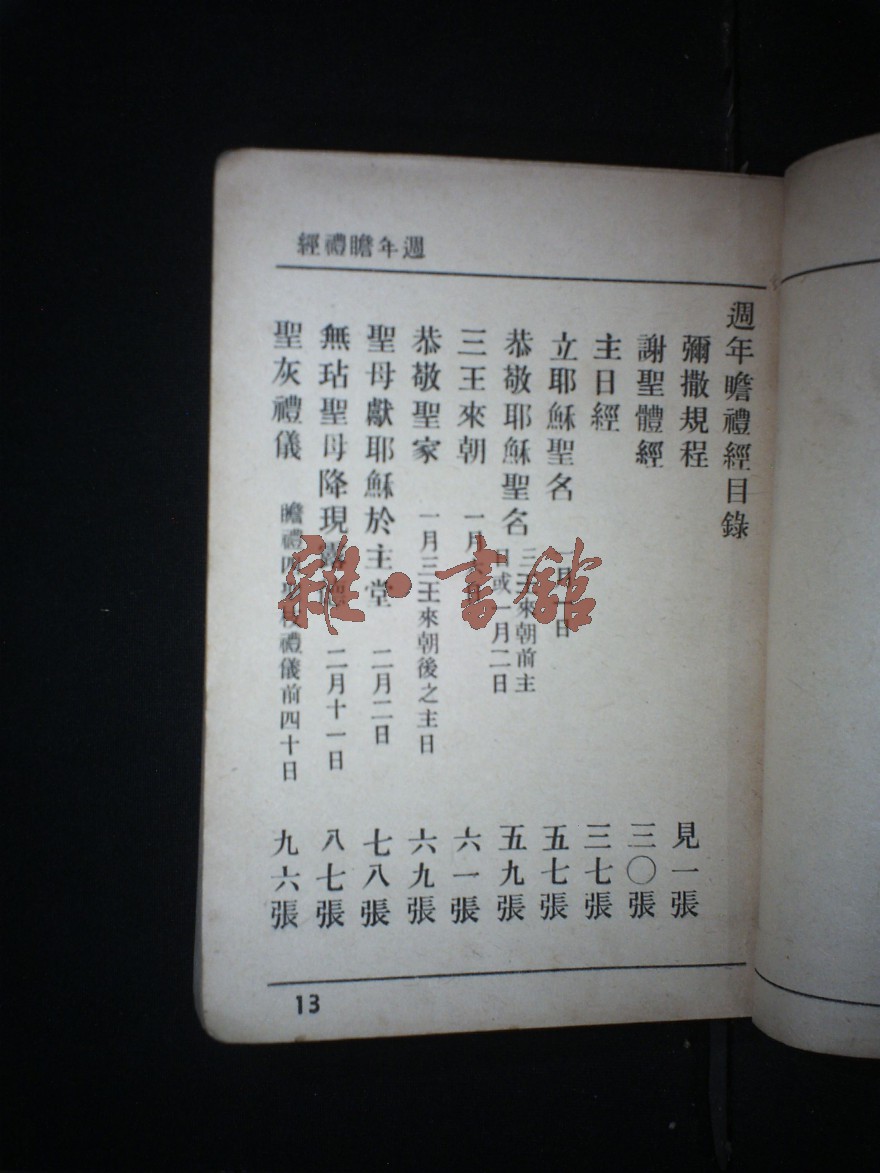 週年瞻禮經
週年瞻禮經目錄
彌撒規程 見一張
謝聖體經 三〇張
主日經 三七張
立耶穌聖名 一月一日 五七張
恭敬耶穌聖名 三王來朝前主日或一月二日 五九張
三王來朝 一月六日 六一張
恭敬聖家 一月三王來朝後之主日 六九張
聖母獻耶穌於主堂 二月二日 七八張
無玷聖母降現露德 二月十一日 八七張
聖灰禮儀 瞻禮四聖枝禮儀前四十日 九六張
13
雜·書館